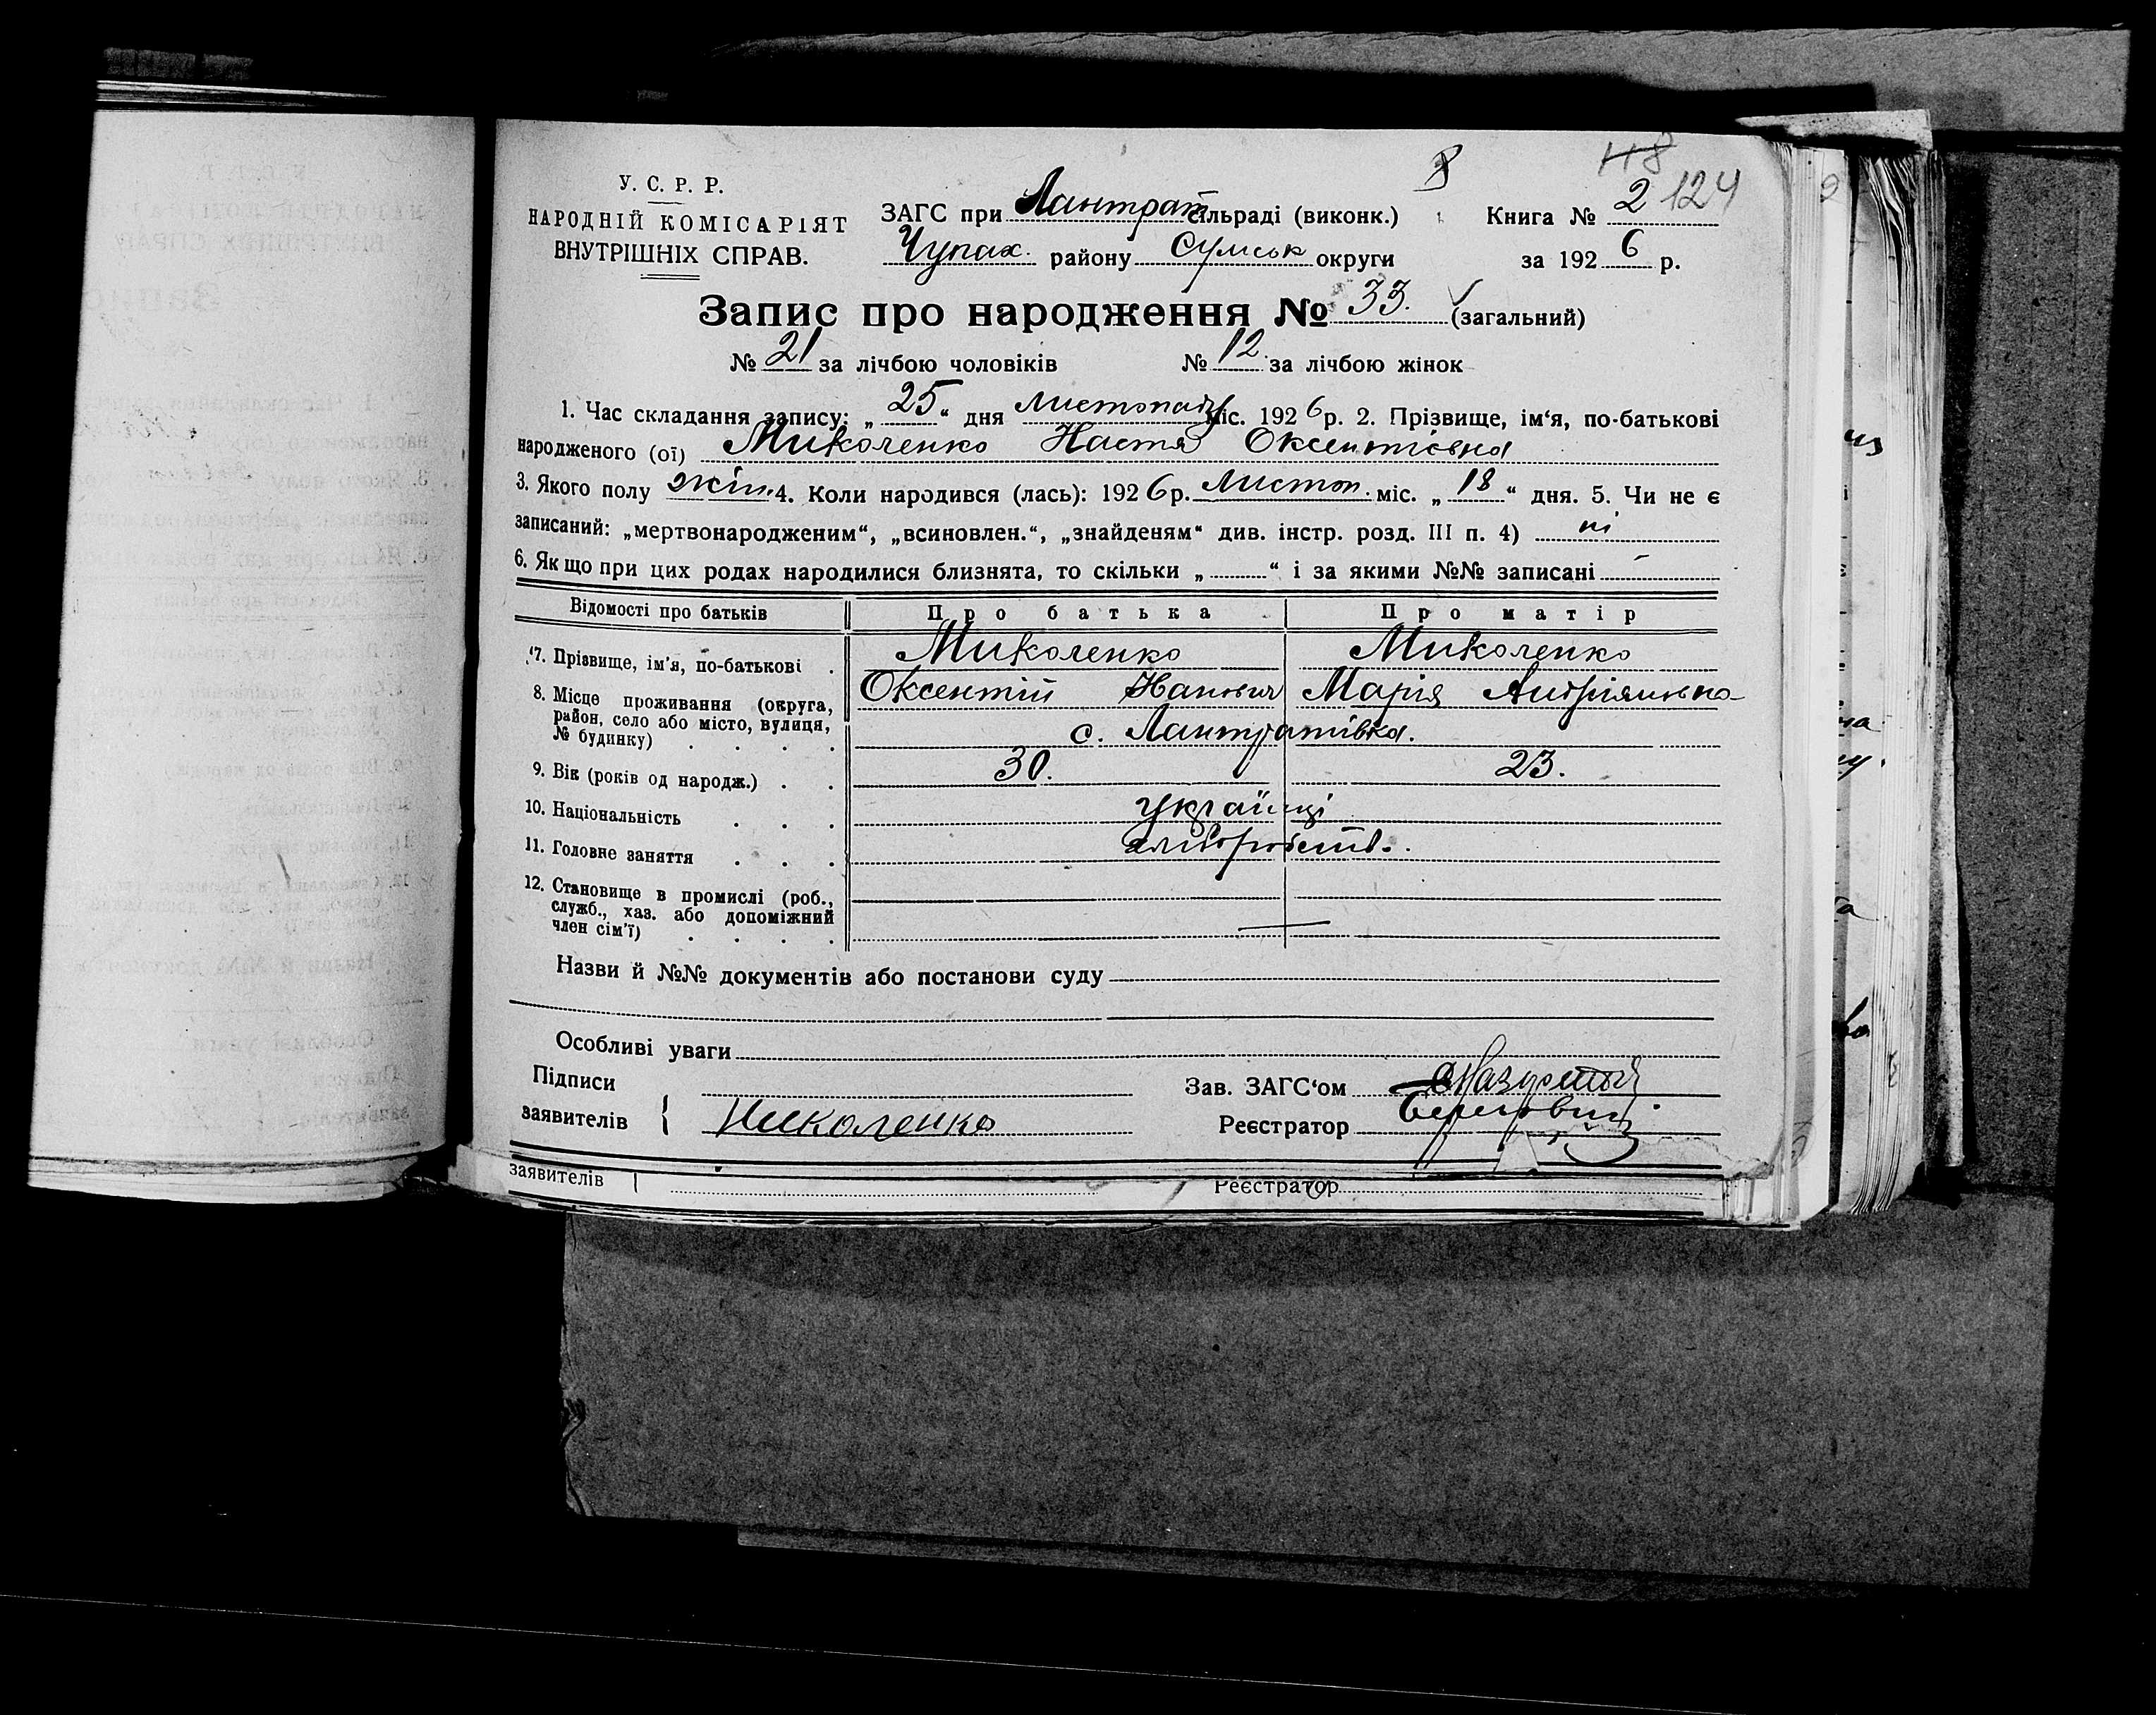 8
118
У. С. Р. Р.
НАРОДНІЙ КОМІСАРІЯТ
ВНУТРІШНІХ СПРАВ.
ЗАГС при Лантрат сільраді (виконк.) Книга № 2 124
Чупах. району Сумськ округи за 1926 р.
Запис про народження № 33. (загальний)
№ 21 за лічбою чоловіків № 12. за лічбою жінок
1. Час складання запису: „25“ дня листопаду міс. 1926 р. 2. Прізвище, ім‘я, по-батькові
народженого (ої) Миколенко Настя Оксентієвна
3. Якого полу жін. 4. Коли народився (лась): 1926 р. Листоп. міс. „18“ дня. 5. Чи не є
записаний: „мертвонародженим“, „всиновлен.“, „знайденям“ див. інстр. розд. III п. 4) ні
6. Якщо при цих родах народилися близнята, то скільки „ “ і за якими №№ записані -
Відомості про батьків Про батька Про матір
7. Прізвище, ім'я, по-батькові Миколенко Миколенко
Оксентій Марія
8. Місце проживання (округа,
район, село або місто, вулиця,
№ будинку) с. Лантратівка.
9. Вік (років од народж.) 30. 23.
10. Національність українці
11. Головне заняття хліборобств.
12. Становище в промислі (роб.,
служб., хаз. або допоміжний
член сім'ї) —
Назви й №№ документів або постанови суду
Особливі уваги
Підписи
заявителів { Миколенко
Зав. ЗАГС‘ом
Реєстратор
заявителів
Реєстратор